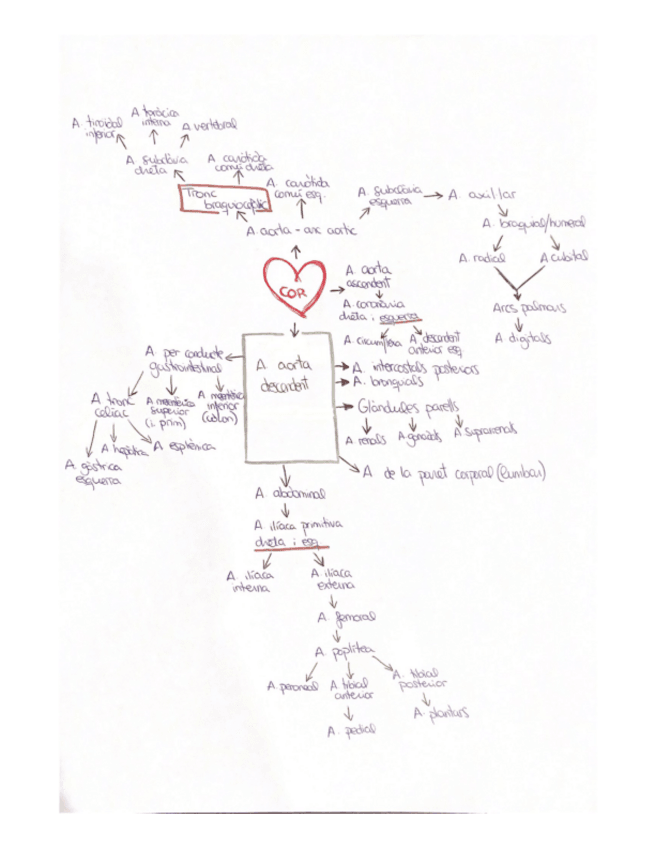 A toràcica
A tiroidal interna A vertebral
inferior
A subclàvia A caròtida
dreta comú dreta
A. caròtida
comú esq.
Tronc
braquiocefàlic
A. subclàvia
esquerra
A. axil·lar
A. aorta - arc aòrtic
A. braquial/humeral
A. radial A cubital
COR
A. aorta
ascendent
A. coronària
dreta i esquerra
Arcs palmars
A digitals
A. circumflexa A descendent
anterior esq
A per conducte
gastrointestinal
A aorta
descendent
A. intercostals posteriors
A. bronquials
Glàndules parells
A tronc
celíac
A mesentèrica
superior
(i. prim)
A mesentèrica
inferior
(còlon)
A renals A. gònades A suprarenals
A hepàtica A esplènica
A gàstrica
esquerra
A de la paret corporal (lumbar)
A abdominal
A ilíaca primitiva
dreta i esq
A ilíaca
interna
A ilíaca
externa
A. femoral
A. poplítea
A. peroneal A tibial
anterior
A. tibial
posterior
A. plantars
A. pedial